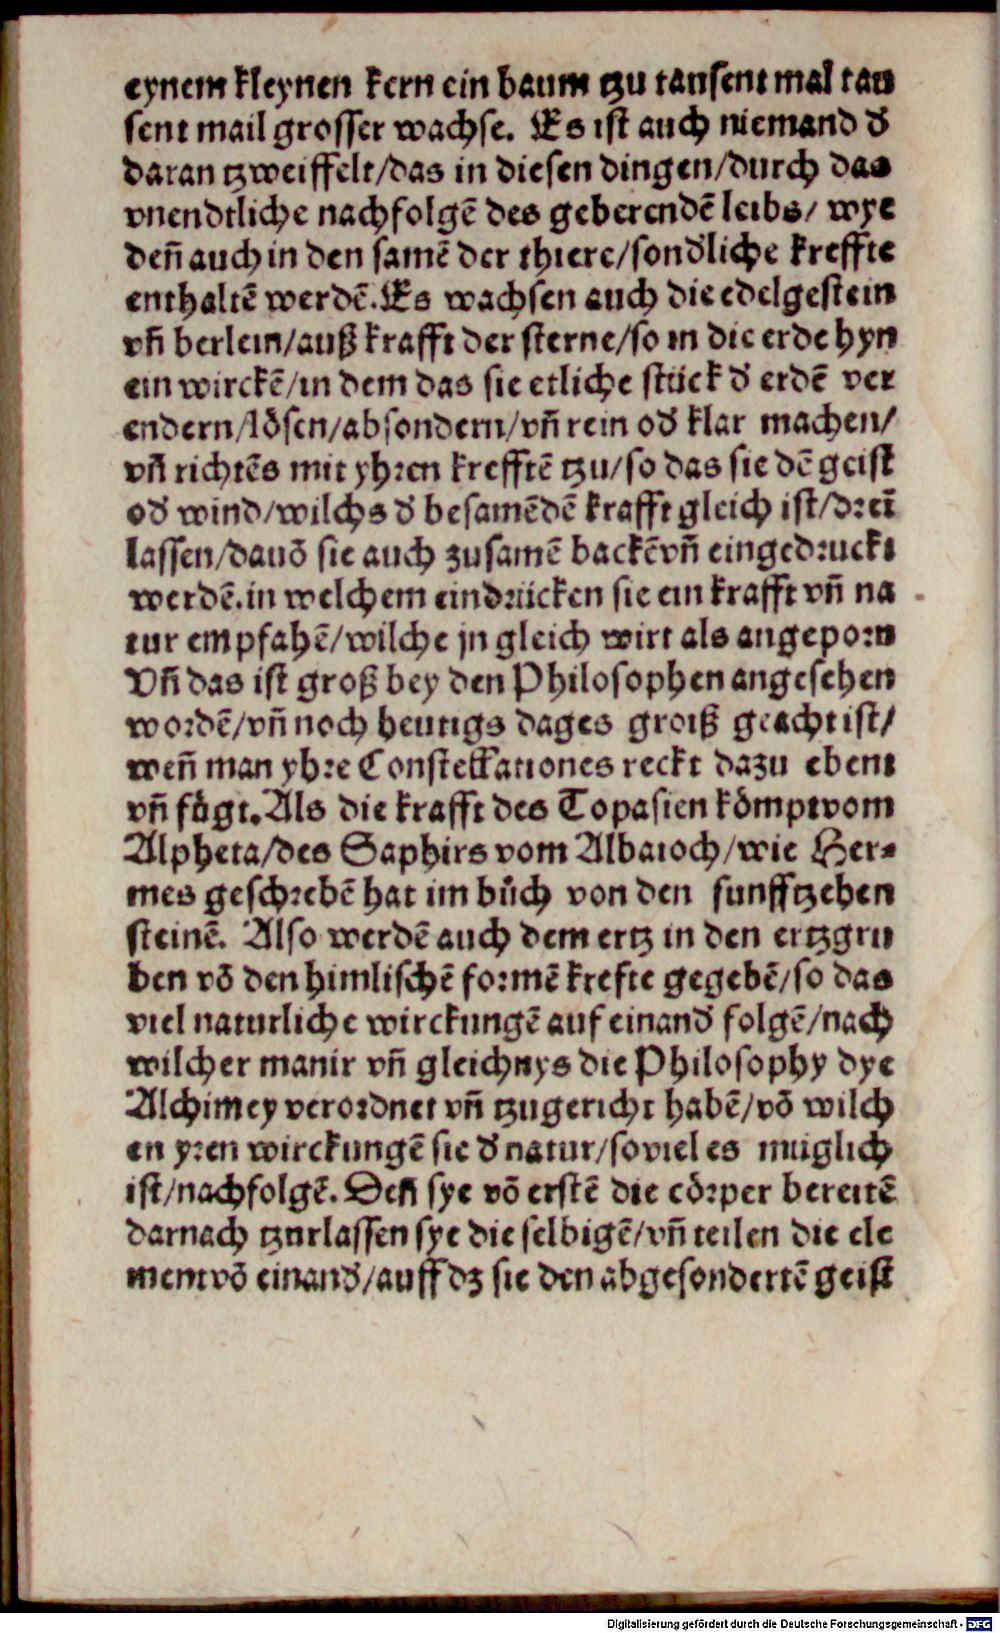 eynem kleynen kern ein baum tzu tausent mal tau
sent mail grosser wachse. Es ist auch niemand d̕
daran tzweiffelt/das in diesen dingen/durch das
vnendtliche nachfolgẽ des geberendẽ leibs/ wye
den̄ auch in den samẽ der thiere/sond̕liche kreffte
enthaltẽ werdẽ. Es wachsen auch die edelgestein
vn̄ berlein/auß krafft der sterne/so in die erde hyn
ein wirckẽ/in dem das sie etliche stück d̕ erdẽ ver
endern/lösen/absondern/vn̄ rein od̕ klar machen/
vn̄ richtẽs mit yhren krefftẽ tzu/so das sie dẽ geist
od̕ wind/wilchs d̕ besamẽdẽ krafft gleich ist/dreı̄
lassen/dauõ sie auch zusamẽ backẽ vn̄ eingedruckt
werdẽ. in welchem eindrücken sie ein krafft vn̄ na
tur empfahẽ/wilche jn gleich wirt als angeporn
Vn̄ das ist groß bey den Philosophen angesehen
wordẽ/vn̄ noch heutigs dages groiß geacht ist/
wen̄ man yhre Constellationes reckt dazu ebent
vn̄ fůgt. Als die krafft des Topasien kömpt vom
Alpheta/des Saphirs vom Albaioch/wie Her-
mes geschrebẽ hat im bůch von den funfftzehen
steinẽ. Also werdẽ auch dem ertz in den ertzgru
ben võ den himlischẽ formẽ krefte gegebẽ/so das
viel naturliche wirckungẽ auf einand̕ folgẽ/nach
wilcher manir vn̄ gleichnys die Philosophy dye
Alchimey verordnet vn̄ tzugericht habẽ/võ wilch
en yren wirckungẽ sie d̕ natur/so viel es müglich
ist/nachfolgẽ. Den̄ sye võ erstẽ die cörper bereitẽ
darnach tzurlassen sye die selbigẽ/vn̄ teilen die ele
ment võ einand̕/auff dz sie den abgesondertẽ geist
Digitalisierung gefördert durch die Deutsche Forschungsgemeinschaft - DFG